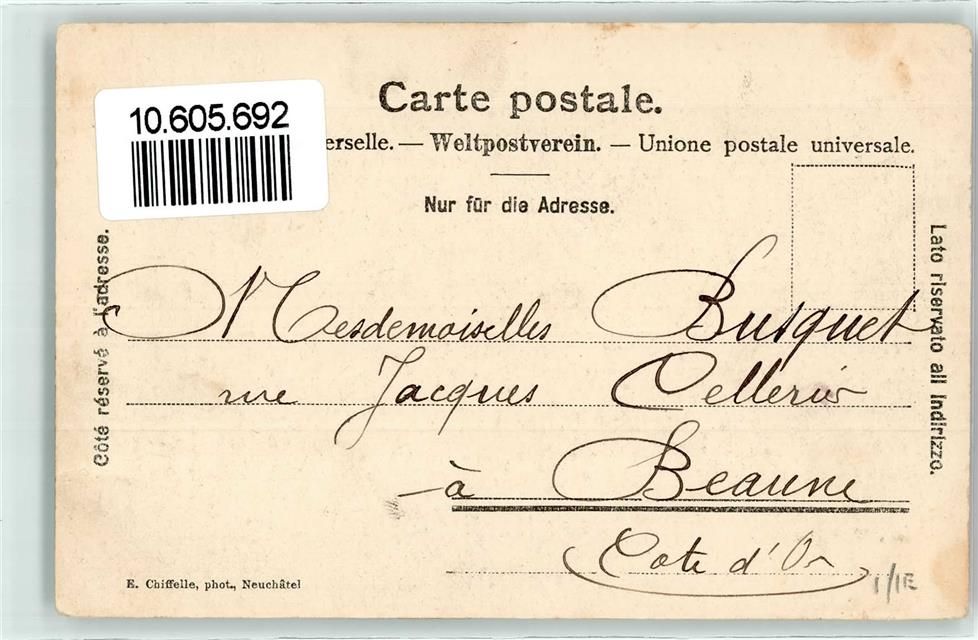 Carte postale.
10.605.692
erselle. — Weltpostverein. — Unione postale universale.
Nur für die Adresse.
Côté réservé à l'adresse.
Lato riservato all Indirizzo.
Mesdemoiselles Busquet
rue Jacques Cellerier
à Beaune
Cote d'Or
E. Chiffelle, phot., Neuchâtel